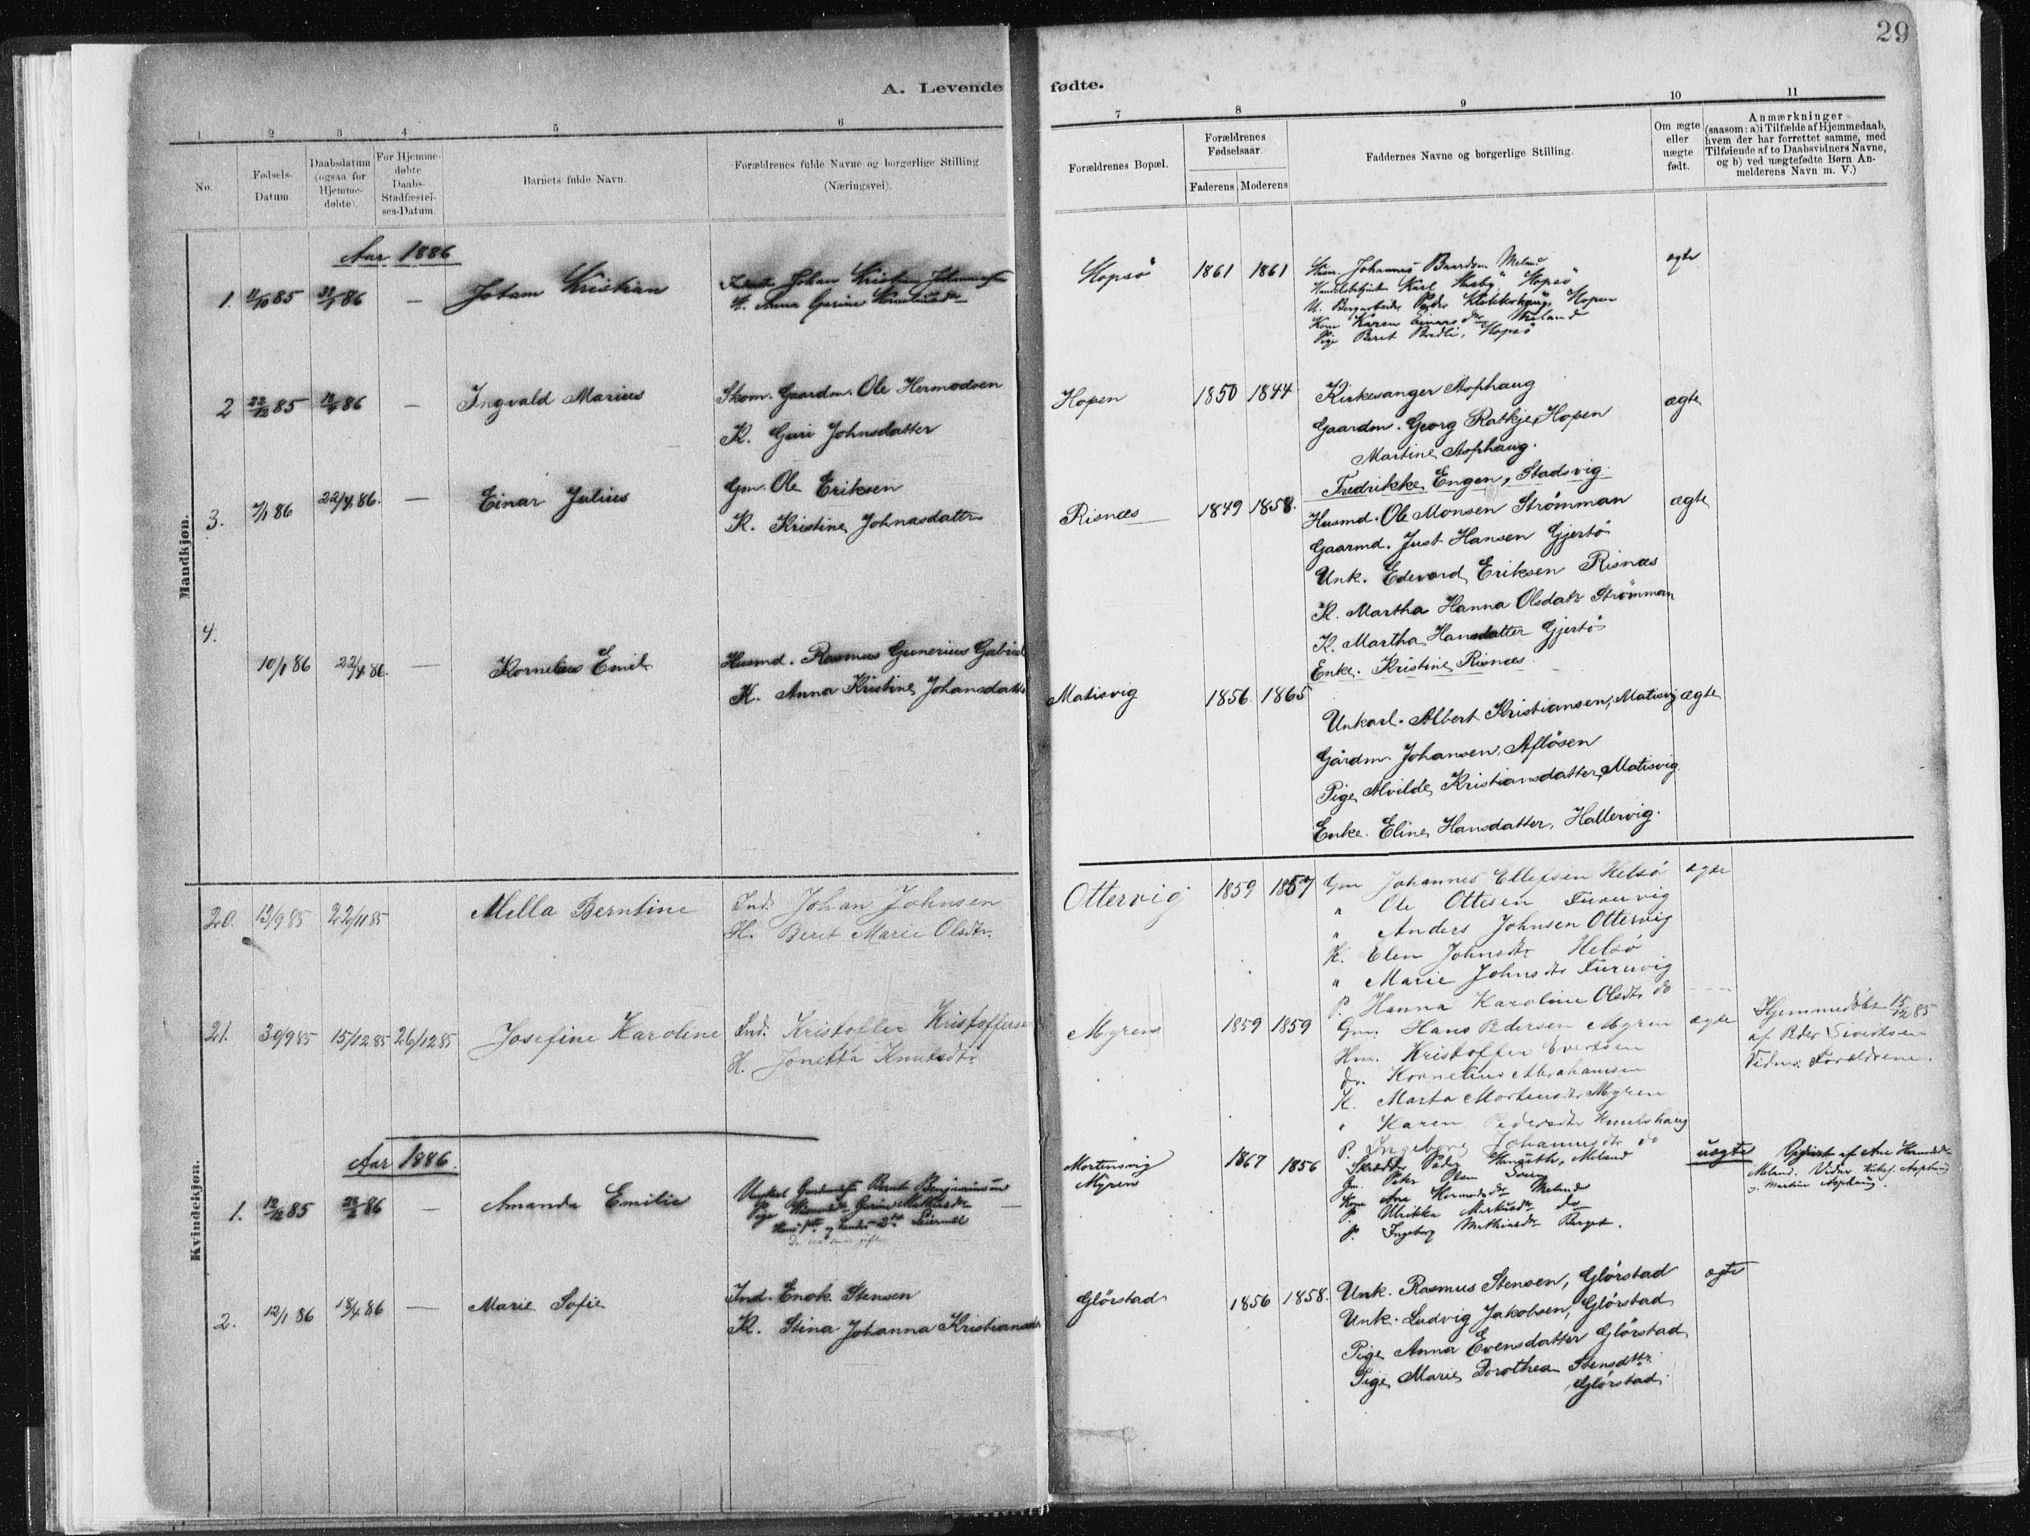 29
A. Levende fødte.
1 2 3 4 5 6 7 8 9 10 11
No.
Fødsels-
Datum.
Daabsdatum
(ogsaa for
Hjemme-
døbte).
For Hjemme-
døbte
Daabs-
Stadfæstel-
ses-Datum.
Barnets fulde Navn.
Forældrenes fulde Navne og borgerlige Stilling
(Næringsvei).
Forældrenes Bopæl.
Forældrenes
Fødselsaar.
Faderens. Moderens
Faddernes Navne og borgerlige Stilling.
Om ægte
eller
uægte
født.
Anmærkninger
(saasom: a) i Tilfælde af Hjemmedaab,
hvem der har forrettet samme, med
Tilføiende af to Daabsvidners Navne,
og b) ved uægtefødte Børn An-
melderens Navn m. V.)
Mandkjøn.
Aar 1886
1. 85 86 — Jotam Kristian
Johan Kristian
Anna Gurine
Hopsø 1861 1861
Johannes Baardsen Meland
Karl Husby, Hopsø
Hopen
Karen Meland
Pige Beret Hopsø
ægte
2 22/12 85 86 — Ingvald Marius
Skom. Gaardm. Ole Hermodsen
K. Guri Johnsdatter
Hopen 1850 1844
Kirkesanger Asphaug
Gaardm. Georg Ratkje, Hopen
Martine Asphaug.
Fredrikke Engen, Stadsvig.
ægte
3. 7/1 86 22/4 86. — Einar Julius
Gm. Ole Eriksen
K. Kristine Johnasdatter
Risnæs 1849 1858.
Husmd. Ole Monsen Strømman
Gaarmd. Just Hansen Gjertø
Unk. Edevard Eriksen Risnæs
K. Martha Hanna Olsdatr Strømman
K. Martha Hansdatter Gjertø
Enke. Kristine Risnæs
ægte
4. 10/1 86 22/4 86. — Kornelius Emil
Husmd. Rasmus Gunerius Gabriel
K. Anna Kristine Johansdatter
Matisvig 1856 1865
Unkarl. Albert Kristiansen, Matisvig
Gårdm Johansen, Afløsen
Pige Alvilde Kristiansdatter, Matisvig
Enke. Eline Hansdatter, Hallervig.
ægte
Kvindekjøn.
20. 13/9 85 22/11 85 Mella Berntine
Ind. Johan Johnsen
H. Beret Marie Olsdtr.
Ottervig 1859 1857
Gm Johannes Ellefsen Helsø
" Ole Ottesen Furuvig
" Anders Johnsen Ottervig
K. Elen Johnsdtr Helsø
" Marie Johnsdtr Furuvig
P. Hanna Karoline Olsdtr do
ægte
21. 30/9 85 15/12 85 26/12 85 Josefine Karoline
Ind. Kristoffer Kristoffersen
H. Jonetta Knutsdtr.
Myren 1859 1859
Gm. Hans Pedersen Myren
Hm. Kristoffer Evertsen
do. Kornelius Abrahamsen
K. Marta Mortensdtr Myren
" Karen Pedersdtr Knutshaug
P. Ingeborg Johannesdtr do
ægte
Hjemmedøbt 15/12 85
af Peder Sivertsen
Vidner: Forældrene.
Aar 1886.
1. 12/12 85 86 Amanda Emilie
Bernt Benjaminsen
Pige Gurine
Leiermaal
Mortensvig
Myren
1867 1856
Peder Meland
Gm. Peter Olsen
Kone Ane Hermodsdtr Meland
P. Ulrikka Markusdtr do
P. Ingeborg Mathisdtr Berget.
uægte
Opgivet af Ane Hermodsdtr
Meland. Vidner Kirkes. Asphaug
o. Martine Asphaug.
2. 12/1 86 18/4 86 — Marie Sofie
Ind. Enok Stensen
K. Stina Johanna Kristiansdtr
Glørstad 1856 1858.
Unk. Rasmus Stensen, Glørstad
Unk. Ludvig Jakobsen, Glørstad
Pige Anna Evensdatter Glørstad
Pige Marie Dorothea Stensdttr.
Glørstad.
ægte